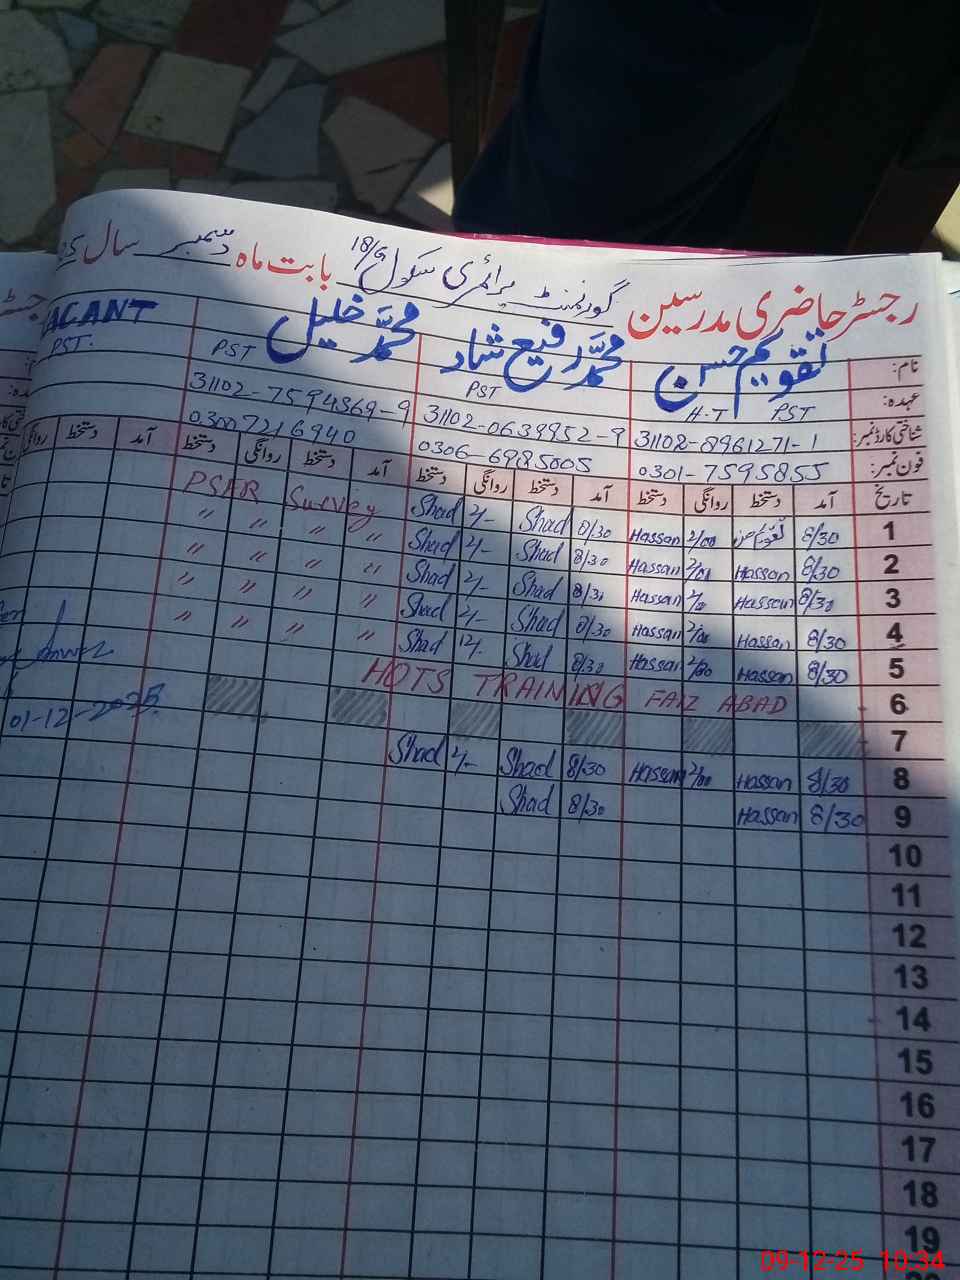 رجسٹر حاضری مدرسین گورنمنٹ پرائمری سکول 18/G بابت ماہ دسمبر سال
نام: تقویم حسن محمد رفیع شاد محمد خلیل ACANT
عہدہ: H.T PST PST PST PST.
شناختی کارڈ نمبر: 31102-8961271-1 31102-0639952-9 31102-7594369-9
فون نمبر: 0301-7595855 0306-6985005 03007216940
تاریخ آمد دستخط روانگی دستخط آمد دستخط روانگی دستخط آمد دستخط روانگی دستخط آمد دستخط روانگی
1 8/30 تقویم حسن 2/00 Hassan 8/30 Shad 2/- Shad PSER Survey
2 8/30 Hassan 2/00 Hassan 8/30 Shad 2/- Shad " " " "
3 8/30 Hassan 2/00 Hassan 8/30 Shad 2/- Shad " " " "
4 8/30 Hassan 2/00 Hassan 8/30 Shad 2/- Shad " " " "
5 8/30 Hassan 2/00 Hassan 8/30 Shad 12/- Shad " " " "
6 HOTS TRAINING FAIZ ABAD
7
8 8/30 Hassan 2/00 Hassan 8/30 Shad 2/- Shad
9 8/30 Hassan 8/30 Shad
01-12-2025
10
11
12
13
14
15
16
17
18
19
09-12-25 10:34